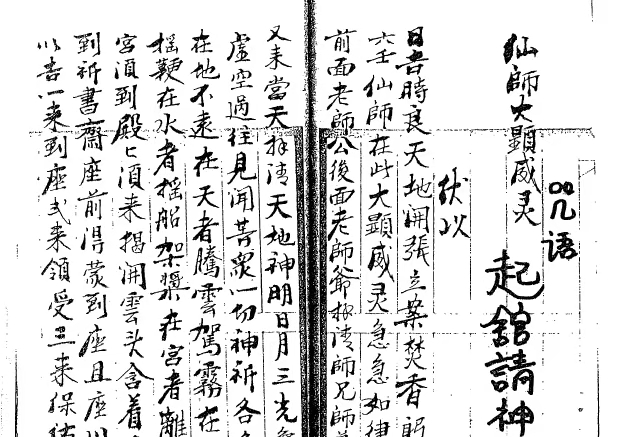 仙師大顯威灵
咒语
起舘請神
伏以
日吉時良天地開張立案焚香
六壬仙師在此大顯威灵急急如律
前面老師公後面老師爺拜請師兄師
又来當天拜請天地神明日月三光
虚空過往見聞菩眾一切神祈各
在地不遠在天者騰雲駕霧在
摇鞕在水者摇船架槳在宮者離
宮須到殿匕須来揭開雲头含着
到祈書齋座前得蒙到座且座
以告一来到座弍来領受三来保